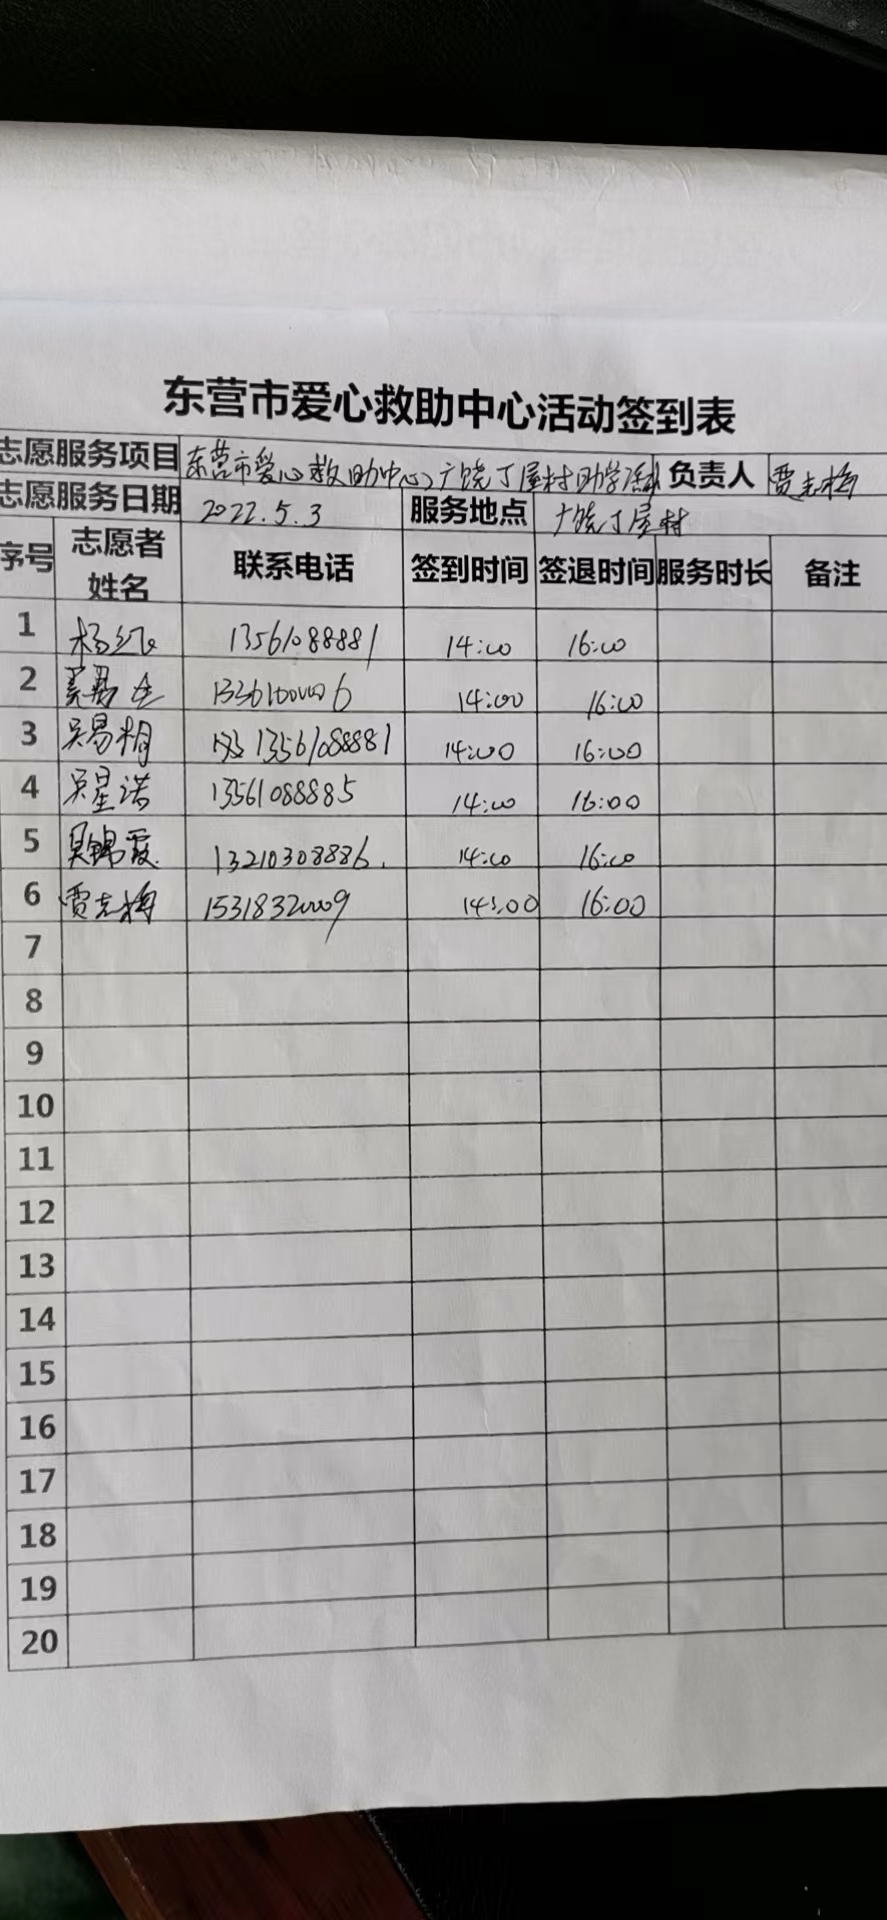 东营市爱心救助中心活动签到表
志愿服务项目 东营市爱心救助中心广饶丁屋村助学活动 负责人 贾志梅
志愿服务日期 2022.5.3 服务地点 广饶丁屋村
序号 志愿者姓名 联系电话 签到时间 签退时间 服务时长 备注
1 杨红 13561088881 14:00 16:00
2 14:00 16:00
3 吴易桐 13561088881 14:00 16:00
4 吴星诺 13561088885 14:00 16:00
5 吴锦霞 13210308886. 14:00 16:00
6 贾志梅 15318320009 14:00 16:00
7
8
9
10
11
12
13
14
15
16
17
18
19
20